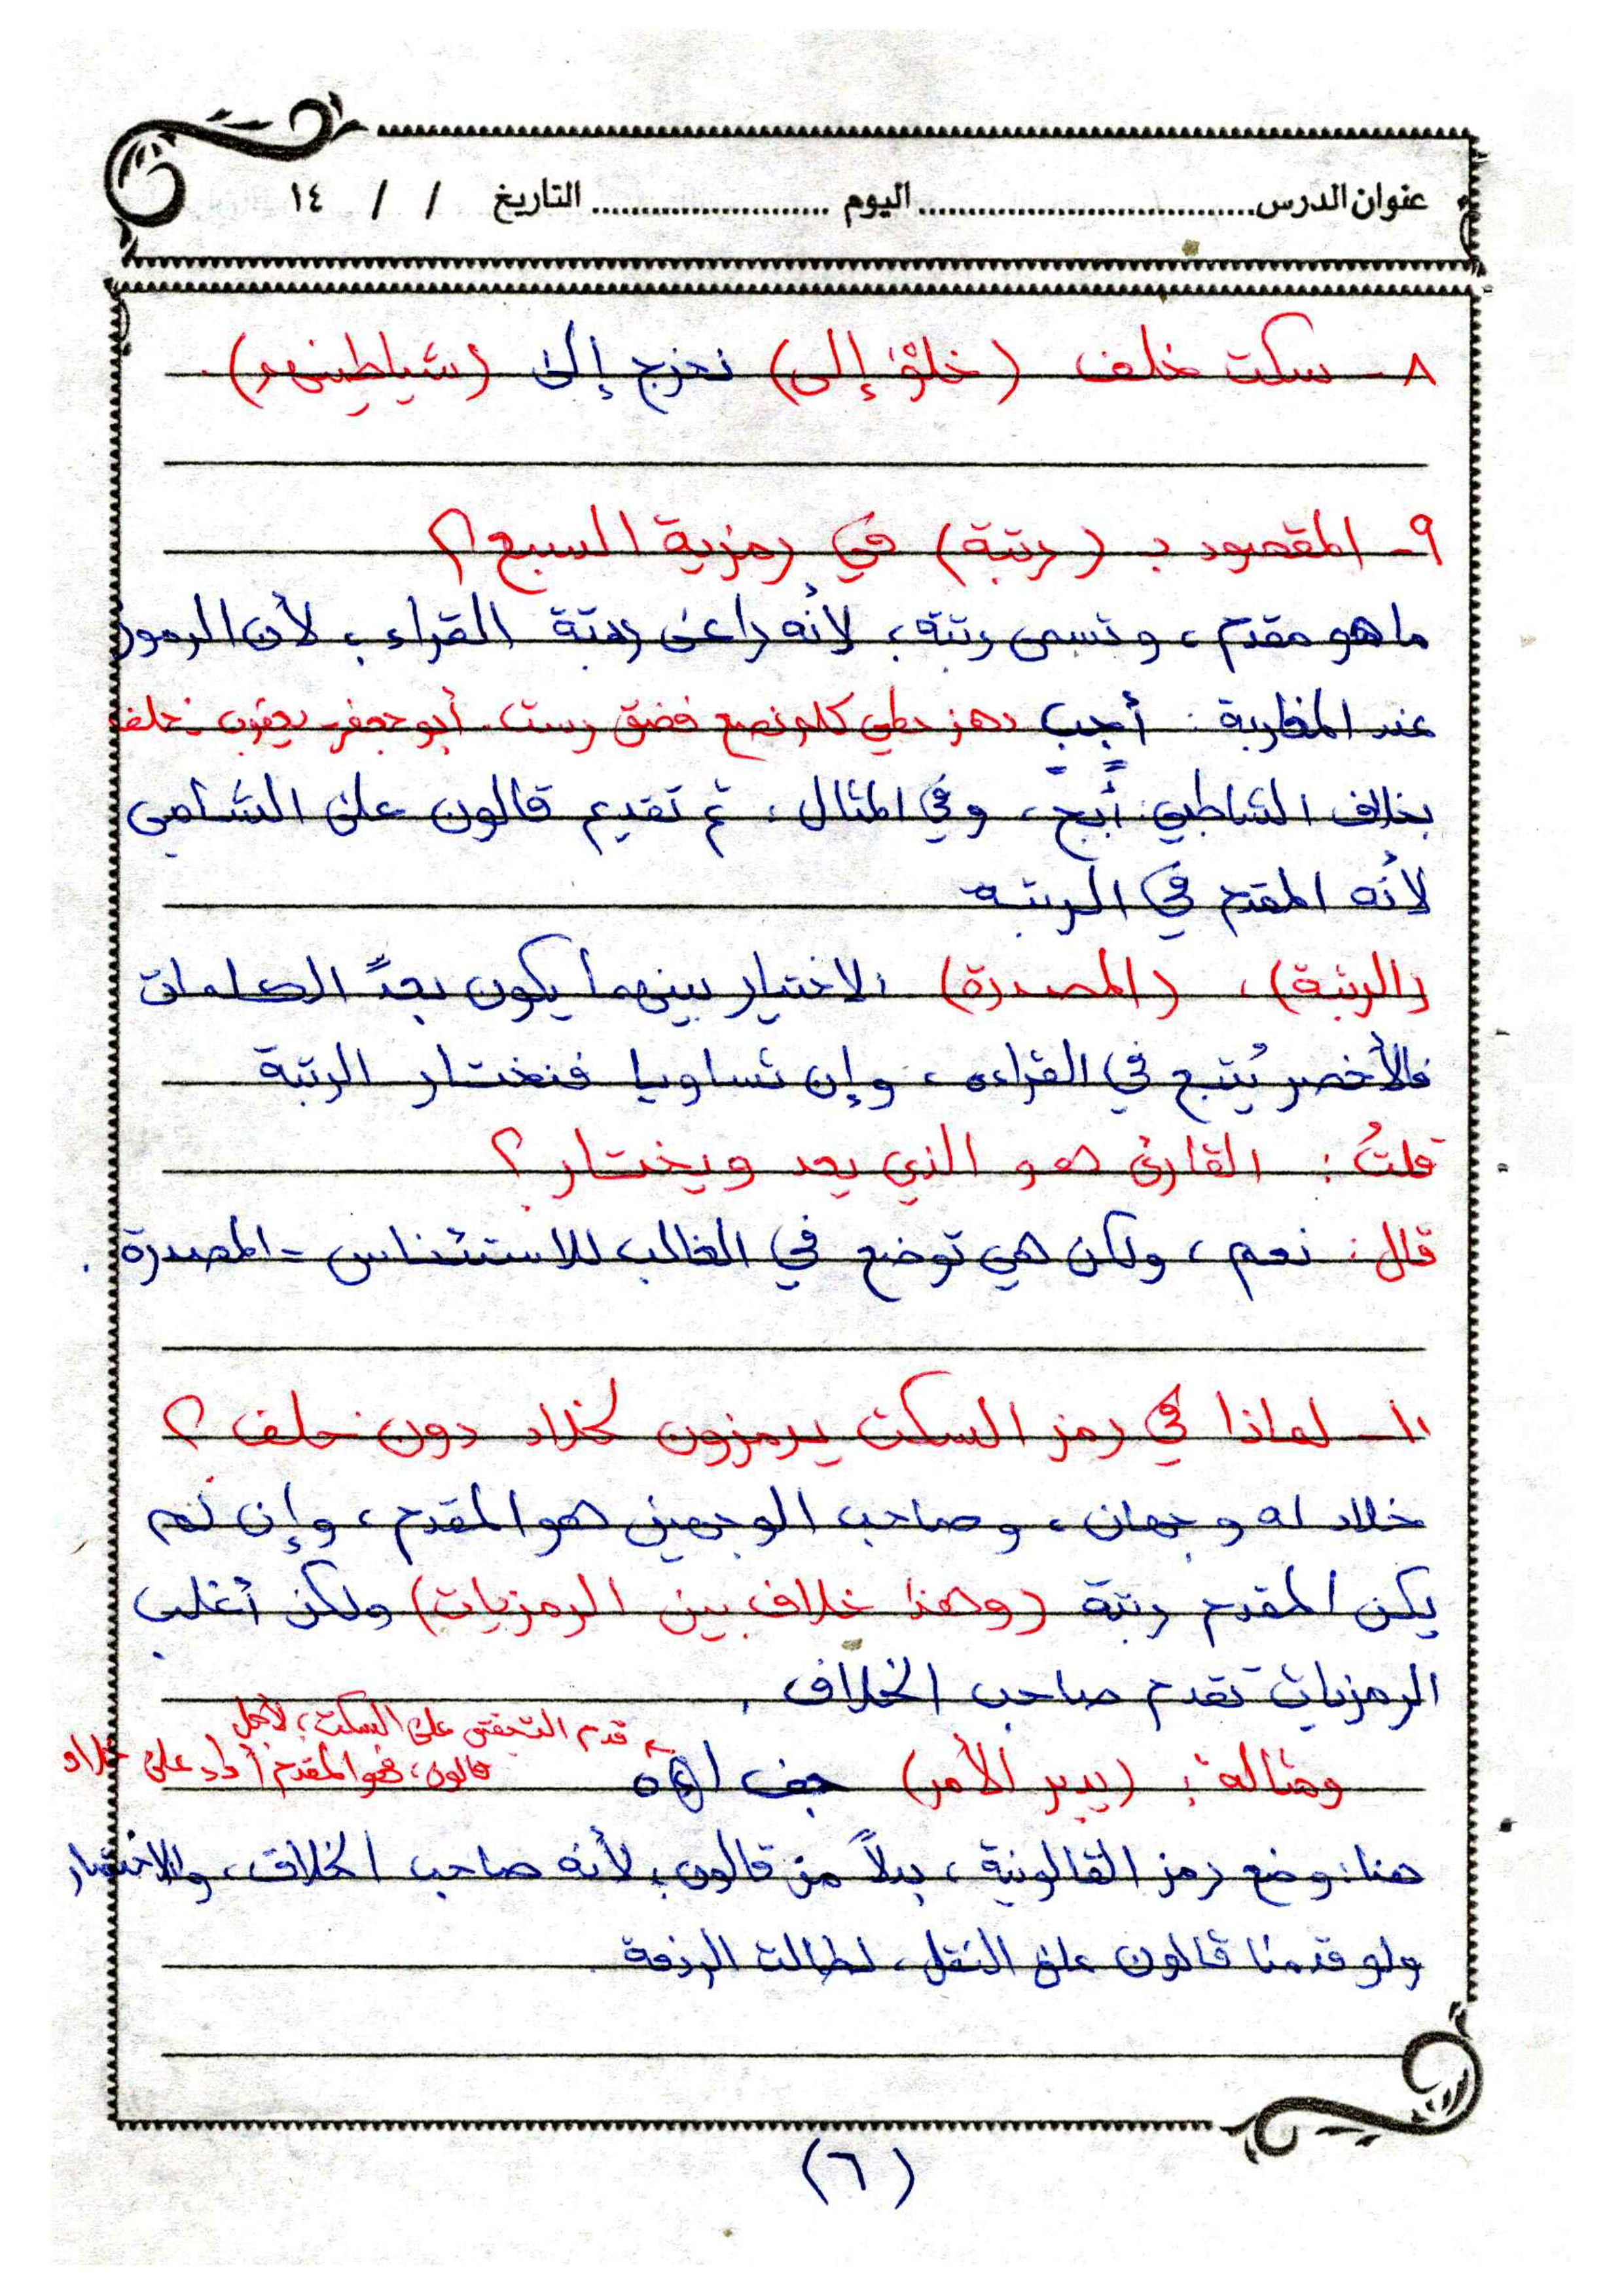 عنوان الدرس.................................. اليوم ........................ التاريخ / / ١٤
٨ - سكت خلف (خلوْا إلى) نخرج إلى (شياطينهم).
٩ - المقصود بـ (رتبة) في رمزية السبع؟
ما هو مقدم، وتسمى رتبة، لأنه راعى رتبة القراء، لأن الرموز
عند المغاربة: أجب دهز حطي كلم نصع فضق رست. أبو جعفر يعقوب خلف
بخلاف الشاطبي: أبج، وفي المثال، تم تقديم قالون على الشامي
لأنه المقدم في الرتبة
(الرتبة)، (المصدرة) الاختيار بينهما يكون بعدِّ الكلمات
فالأخصر يُتبع في القراءة، وإن تساويا فنختار الرتبة
قلتُ: القارئ هو الذي يعد ويختار؟
قال: نعم، ولكن هي توضع في الغالب للاستئناس - المصدرة.
١٠ - لماذا في رمز السكت يرمزون لخلاد دون خلف؟
خلاد له وجهان، وصاحب الوجهين هو المقدم، وإن لم
يكن المقدم رتبة (وهذا خلاف بين الرمزيات) ولكن أغلب
الرمزيات تقدم صاحب الخلاف.
قدم التحقيق على السكت، لأجل
قالون، فهو المقدم أداء على خلاد
ومثاله: (يدبر الأمر) جف
هنا: وضع رمز القالونية، بدلاً من قالون، لأنه صاحب الخلاف، والاختصار
ولو قدمنا قالون على النقل، لطالت الرزمة.
(٦)